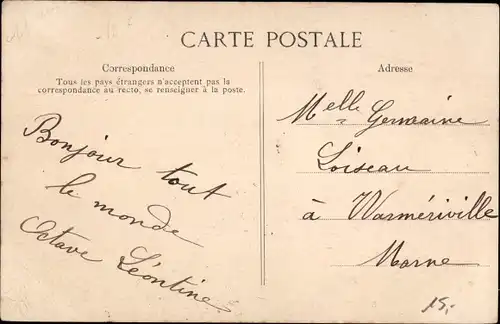 CARTE POSTALE
Correspondance
Tous les pays étrangers n'acceptent pas la
correspondance au recto, se renseigner à la poste.
Adresse
Bonjour tout
le monde
Octave Léontine
Melle Germaine
Loiseau
à Warmériville
Marne
15,-